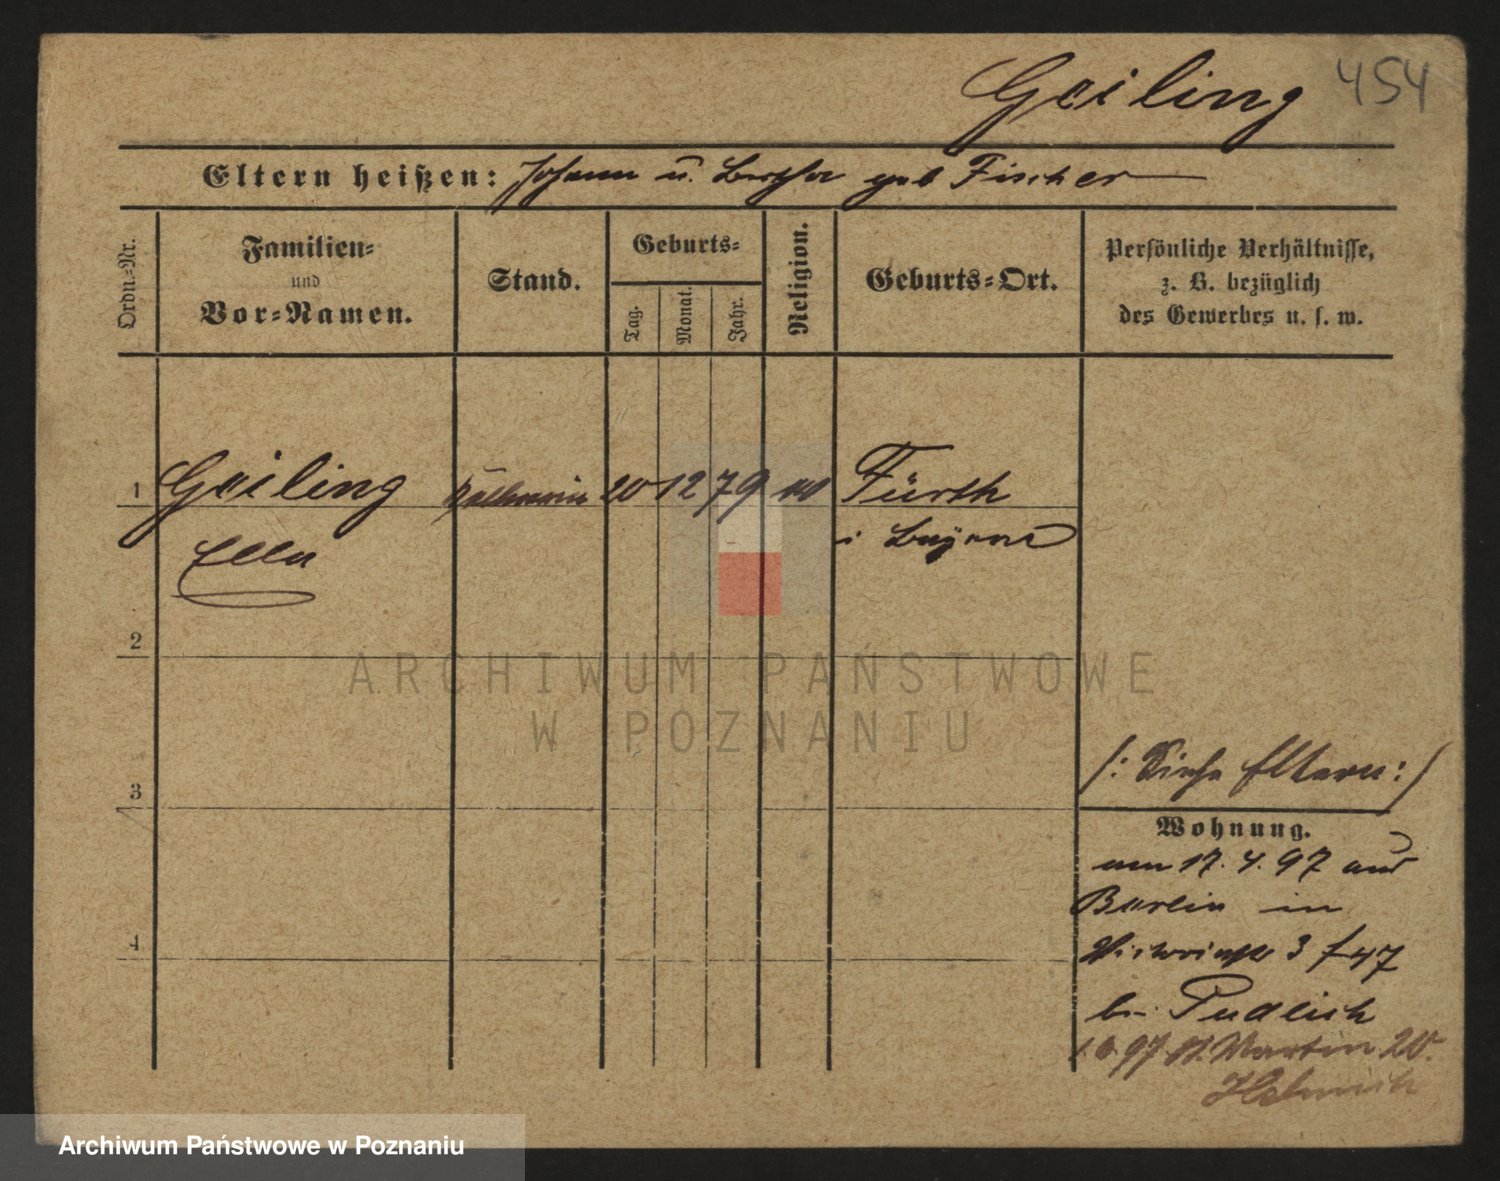 Geiling 454
Eltern heißen: Johann u. Bertha geb Fischer
Ordn.=Nr.
Familien=
und
Vor=Namen.
Stand.
Geburts=
Tag.
Monat.
Jahr.
Religion.
Geburts=Ort.
Persönliche Verhältnisse,
z. B. bezüglich
des Gewerbes u. s. w.
1 Geiling Kellnerin 20 12 79 Fürth
Ella i Bayern
2
ARCHIWUM PAŃSTWOWE
W POZNANIU
/: Siehe Eltern :/
3
Wohnung.
am 17. 4. 97 aus
Berlin in
4
3 f 47
bei Pudlich
1.6.97 St. Martin 20.
Archiwum Państwowe w Poznaniu